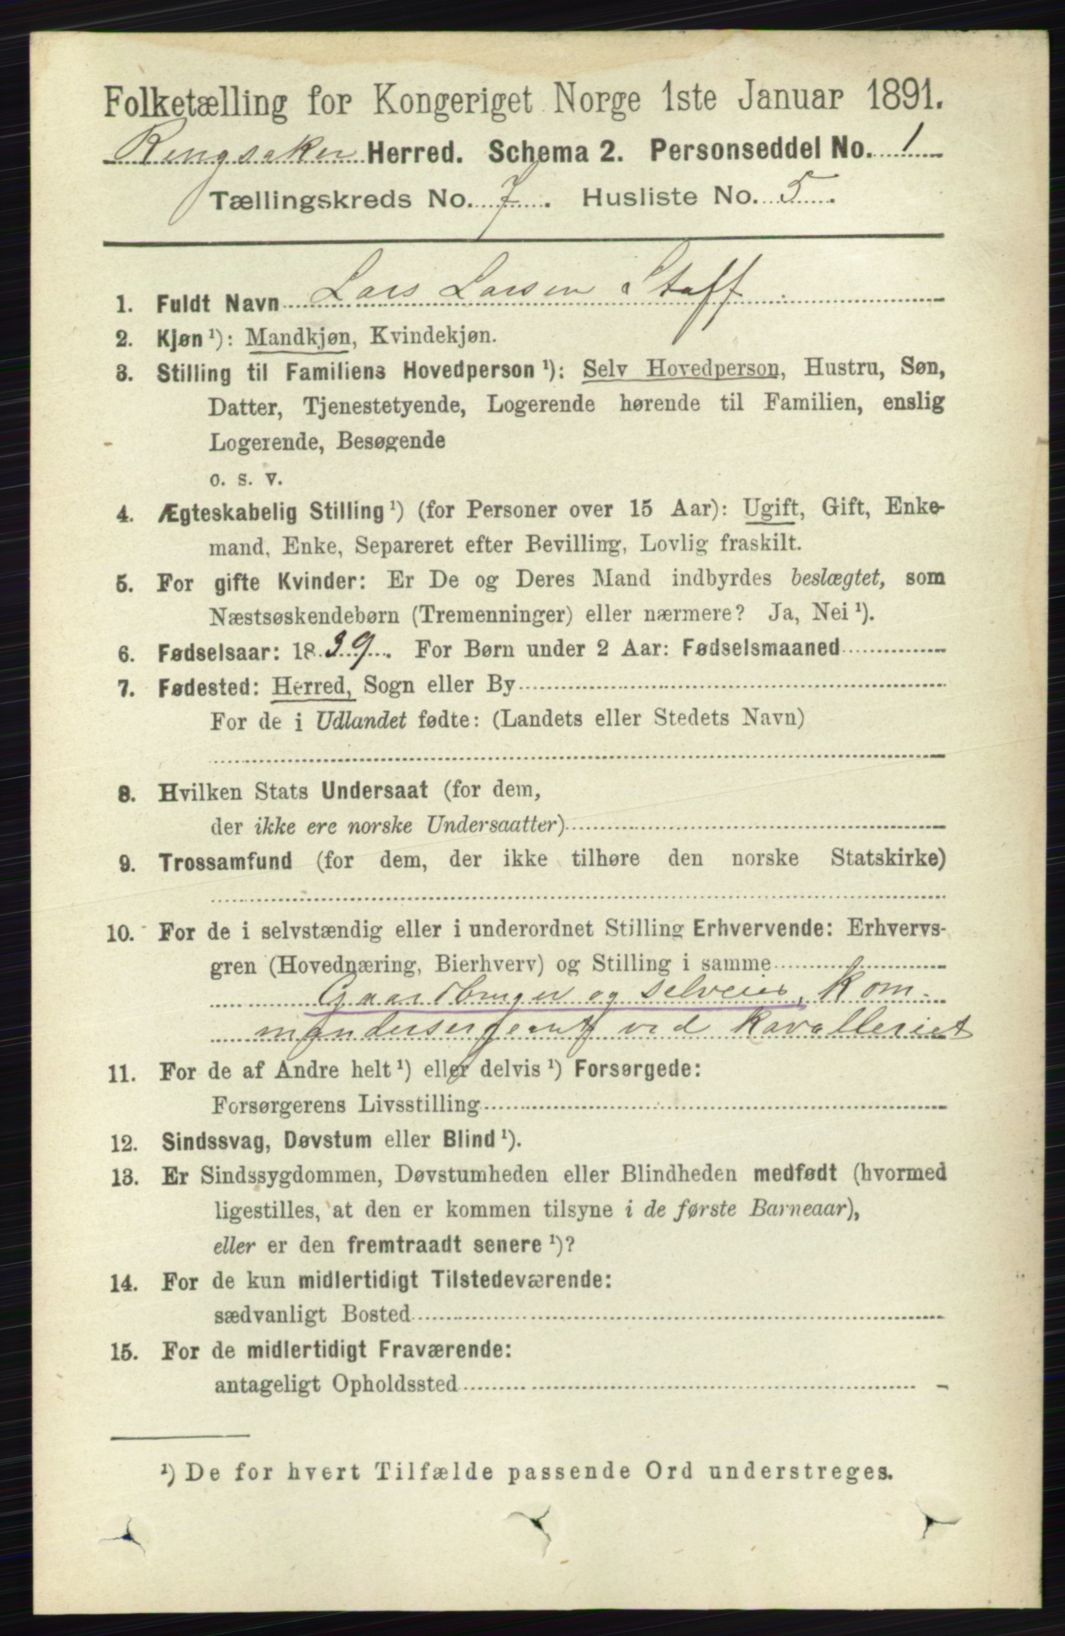 Folketælling for Kongeriget Norge 1ste Januar 1891.
Ringsaker Herred. Schema 2. Personseddel No. 1
Tællingskreds No. 7. Husliste No. 5.
1. Fuldt Navn Lars Larsen Staff
2. Kjøn ¹): Mandkjøn, Kvindekjøn.
3. Stilling til Familiens Hovedperson ¹): Selv Hovedperson, Hustru, Søn,
Datter, Tjenestetyende, Logerende hørende til Familien, enslig
Logerende, Besøgende
o. s. v.
4. Ægteskabelig Stilling ¹) (for Personer over 15 Aar): Ugift, Gift, Enke-
mand, Enke, Separeret efter Bevilling, Lovlig fraskilt.
5. For gifte Kvinder: Er De og Deres Mand indbyrdes beslægtet, som
Næstsøskendebørn (Tremenninger) eller nærmere? Ja, Nei ¹).
6. Fødselsaar: 1839. For Børn under 2 Aar: Fødselsmaaned
7. Fødested: Herred, Sogn eller By
For de i Udlandet fødte: (Landets eller Stedets Navn)
8. Hvilken Stats Undersaat (for dem,
der ikke ere norske Undersaatter)
9. Trossamfund (for dem, der ikke tilhøre den norske Statskirke)
10. For de i selvstændig eller i underordnet Stilling Erhvervende: Erhvervs-
gren (Hovednæring, Bierhverv) og Stilling i samme
Gaardbruger og selveier, Kom-
mandersergeant ved Kavalleriet
11. For de af Andre helt ¹) eller delvis ¹) Forsørgede:
Forsørgerens Livsstilling
12. Sindssvag, Døvstum eller Blind ¹).
13. Er Sindssygdommen, Døvstumheden eller Blindheden medfødt (hvormed
ligestilles, at den er kommen tilsyne i de første Barneaar),
eller er den fremtraadt senere ¹)?
14. For de kun midlertidigt Tilstedeværende:
sædvanligt Bosted
15. For de midlertidigt Fraværende:
antageligt Opholdssted
¹) De for hvert Tilfælde passende Ord understreges.